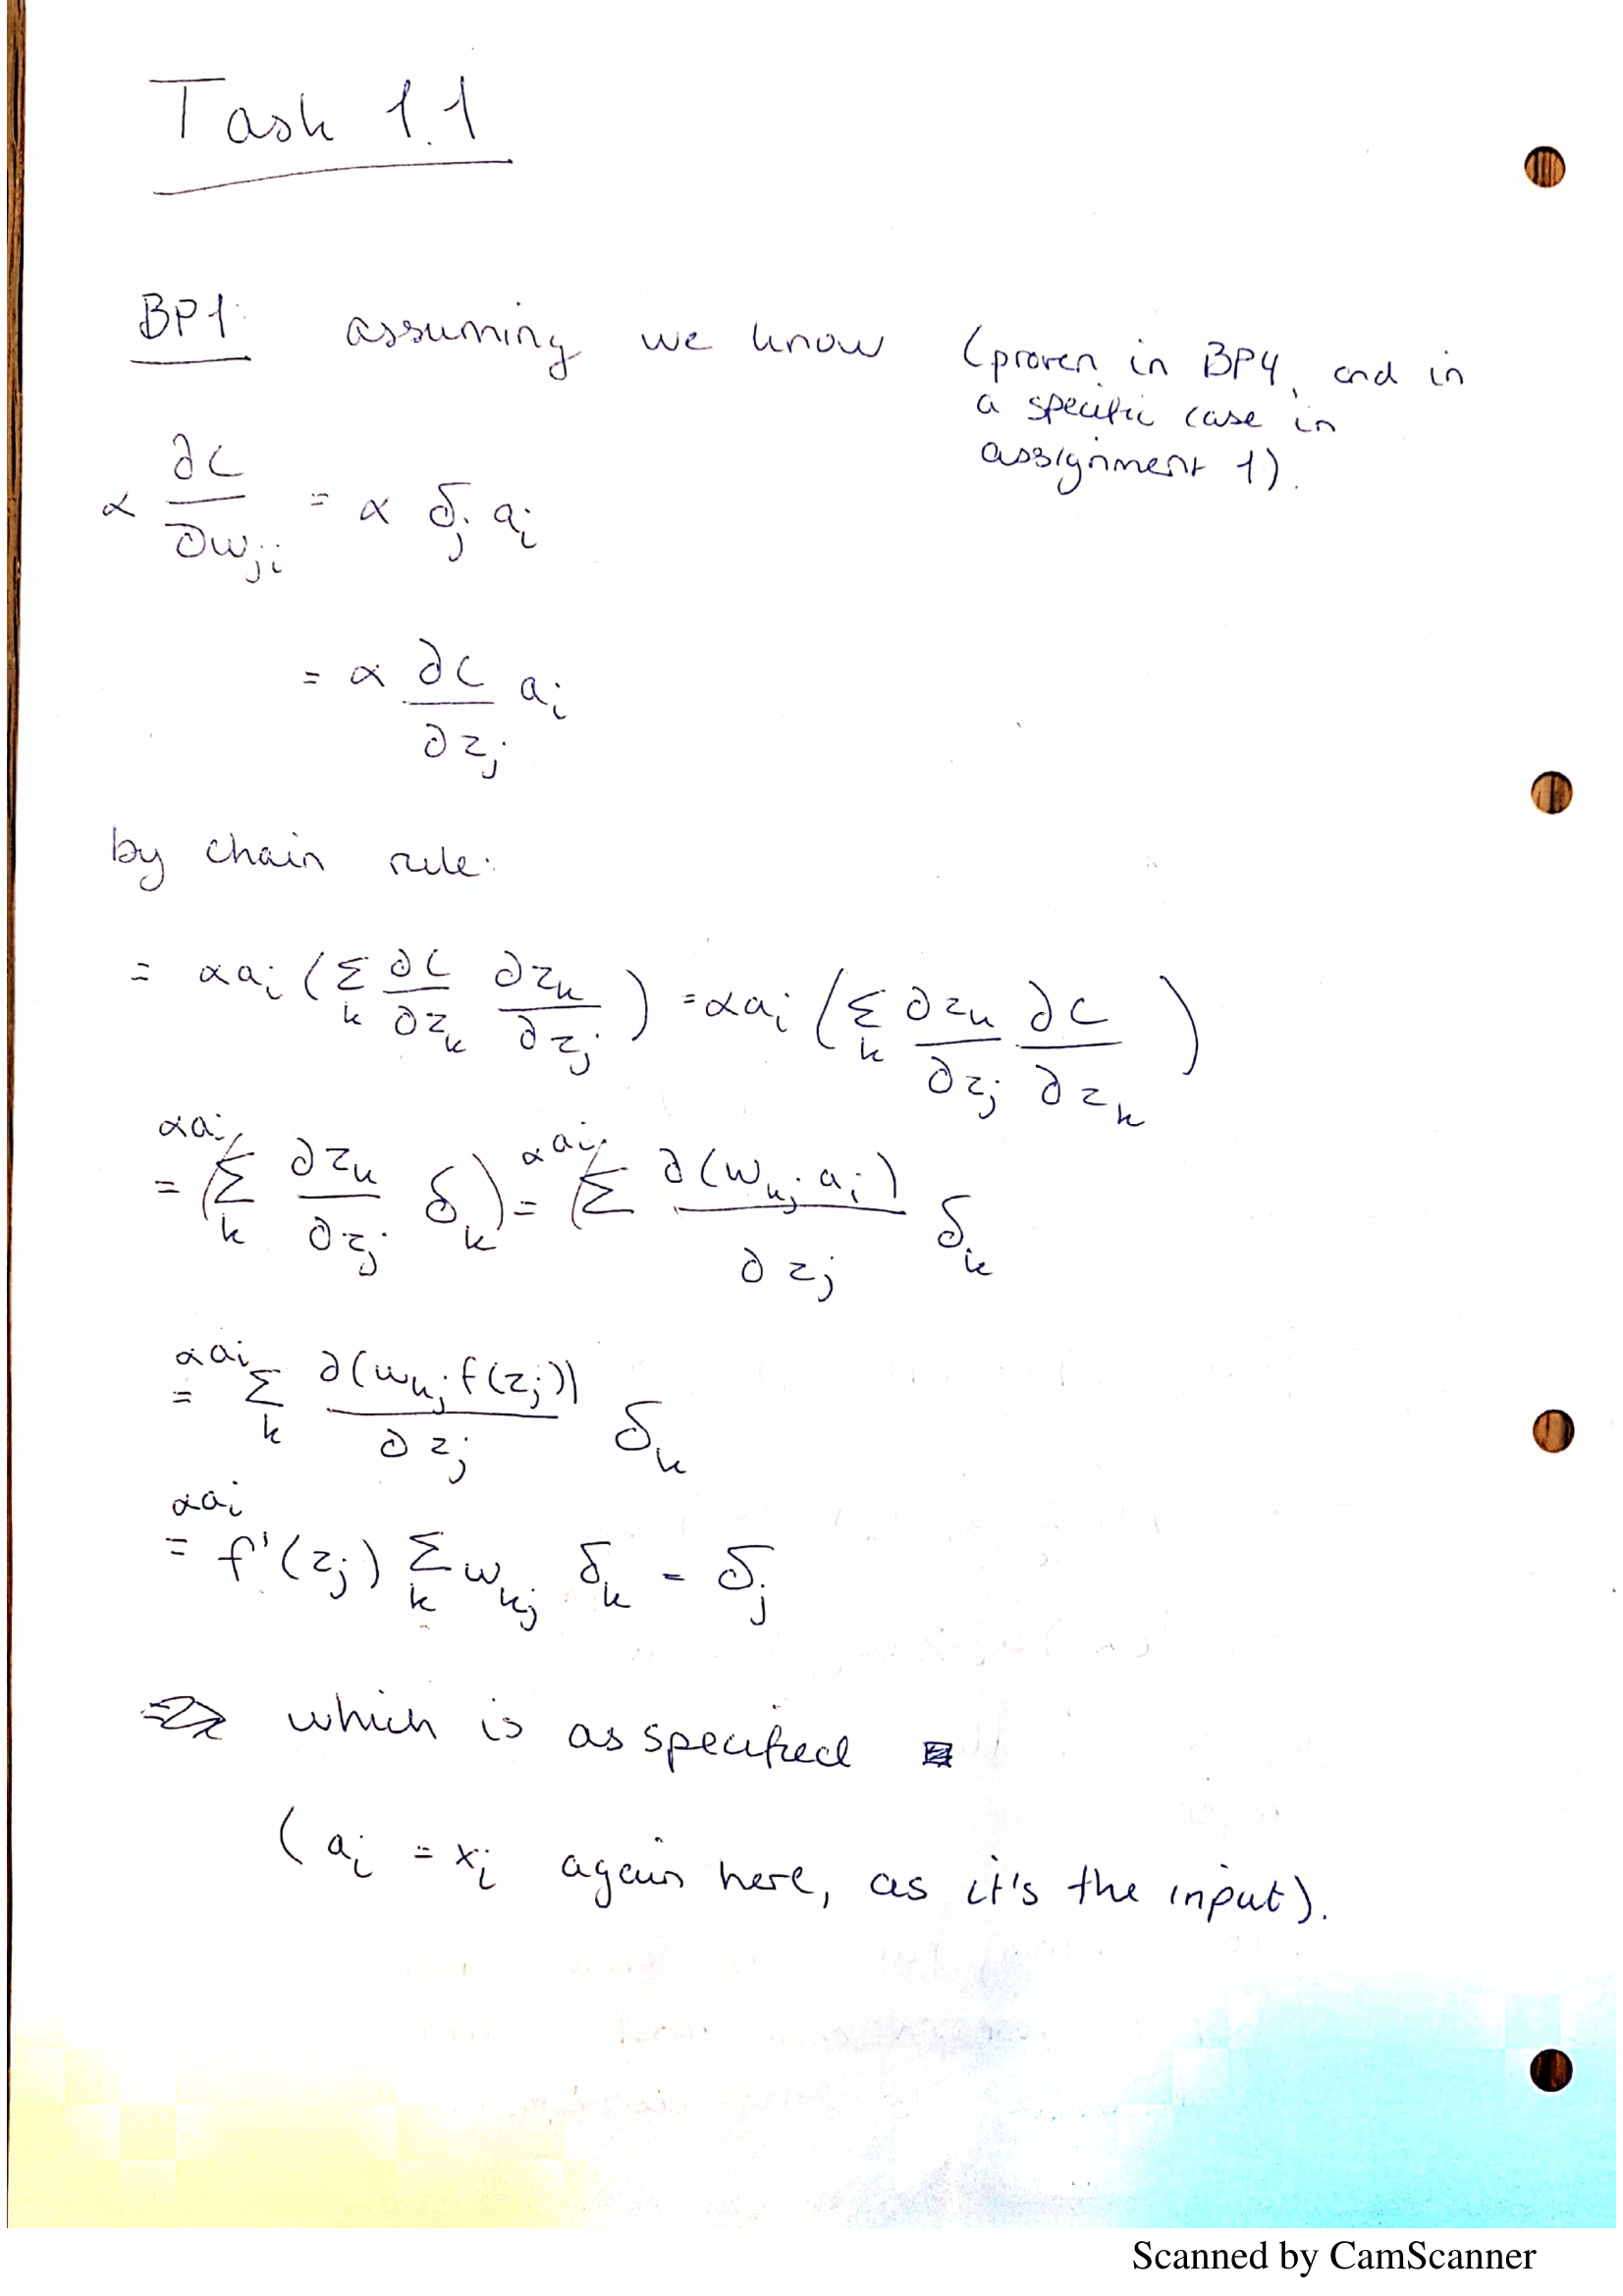 Task 1.1
BP1: assuming we know (proven in BP4, and in
a specific case in
assignment 1).
α ∂C/∂w_ji = α δ_j a_i
= α ∂C/∂z_j a_i
by chain rule:
= α a_i (Σ_k ∂C/∂z_k ∂z_k/∂z_j) = α a_i (Σ_k ∂z_k/∂z_j ∂C/∂z_k)
α a_i
= (Σ_k ∂z_k/∂z_j δ_k) = α a_i (Σ ∂(w_kj a_j)/∂z_j δ_k
α a_i
= Σ_k ∂(w_kj f(z_j))/∂z_j δ_k
α a_i
= f'(z_j) Σ_k w_kj δ_k = δ_j
which is as specified
(a_i = x_i again here, as it's the input).
Scanned by CamScanner